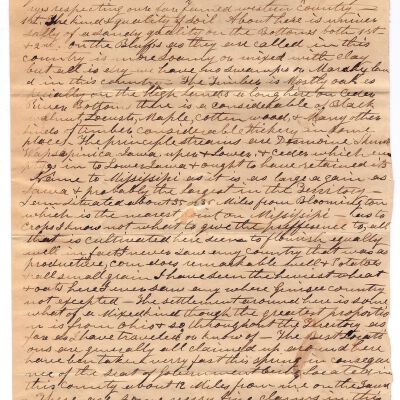 respecting our far famed western Country —
1st The kind & quality of soil. About here is univer
sally of a sandy quality on the Bottoms both 1st
& 2nd. On the Bluffs as they are called in this
country is more loamy or mixed with clay
but all is dry we have no swamps or Marshy land
in this country — The Timber is Mostly oak es
pecially on the high lands along here on Ceder
River Bottoms there is a considerable of Black
walnut, Locust, Maple, Cotton wood, & Many other
kinds of timber considerable Hickery in some
places. The principle streams are
Wapsapinica Iowa, upper & Lower, & Ceder which in
in to Lower Iowa & ought to have retained its
Name to Missisipi as it is as large again as
Iowa & probably the largest in the Territory —
I am situated about 25 Miles from Bloomington
which is the nearest point on Missisipi — As to
crops I know not what to give the preference to, all
that is cultivated here seems to flourish equally
well in fact I never saw any country that was as
productive, Corn does remarkable well & Potatoes
& all small grain. I have seen the heviest wheat
& oats here I ever saw any where Genisee country
not excepted — The settlement around here is some
what of a Mixed kind though the greatest proportio
n is from Ohio & so throughout the Territory as
far as I have traveled or know of — The Best Locati
ons are generally all claimed up around here
have been taken very fast this spring in consequen
ce of the seat of Government being located in
this county about 12 Miles from me on the Iowa
There are some very fine claims in this